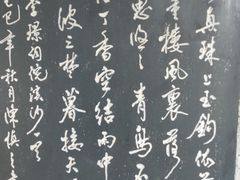 真珠上玉鉤依前
重樓風裏落
思悠悠青鳥
丁香空結雨中
波三楚暮接天
李璟詞浣溪沙一
巳年秋月陳慎之